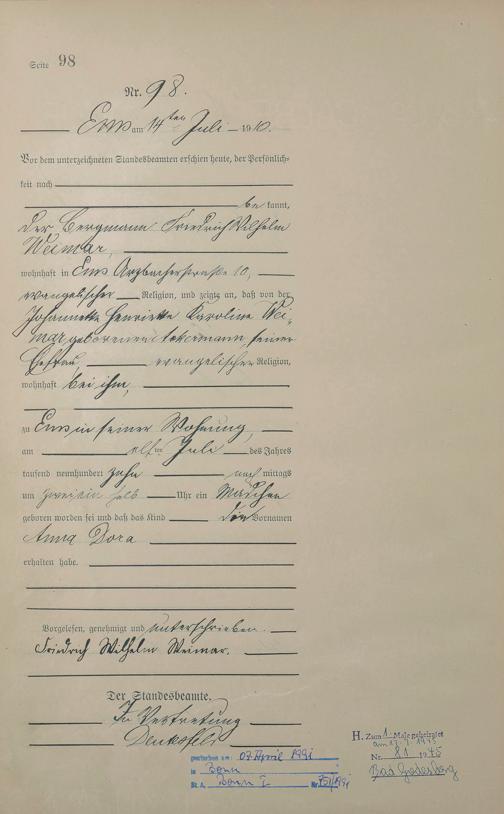 Seite 98
Nr. 98.
Ems am 14ten Juli 1910.
Vor dem unterzeichneten Standesbeamten erschien heute, der Persönlich-
keit nach
be kannt,
der Bergmann Friedrich Wilhelm
Weimar,
wohnhaft in Ems Arzbacherstraße 10,
evangelischer Religion, und zeigte an, daß von der
Johannette Henriette Karoline Wei-
mar geborenen seiner
Ehefrau, evangelischer Religion,
wohnhaft bei ihm,
zu Ems in seiner Wohnung,
am elften Juli des Jahres
tausend neunhundert zehn nach mittags
um ein halb Uhr ein Mädchen
geboren worden sei und daß das Kind die Vornamen
Anna Dora
erhalten habe.
Vorgelesen, genehmigt und unterschrieben.
Friedrich Wilhelm Weimar.
Der Standesbeamte.
In Vertretung
gestorben am: 07. April 1991
in Bonn
St. A. Bonn I Nr.
H. Zum 1. Male geheiratet
am
Nr. 81 1945
Bad Godesberg